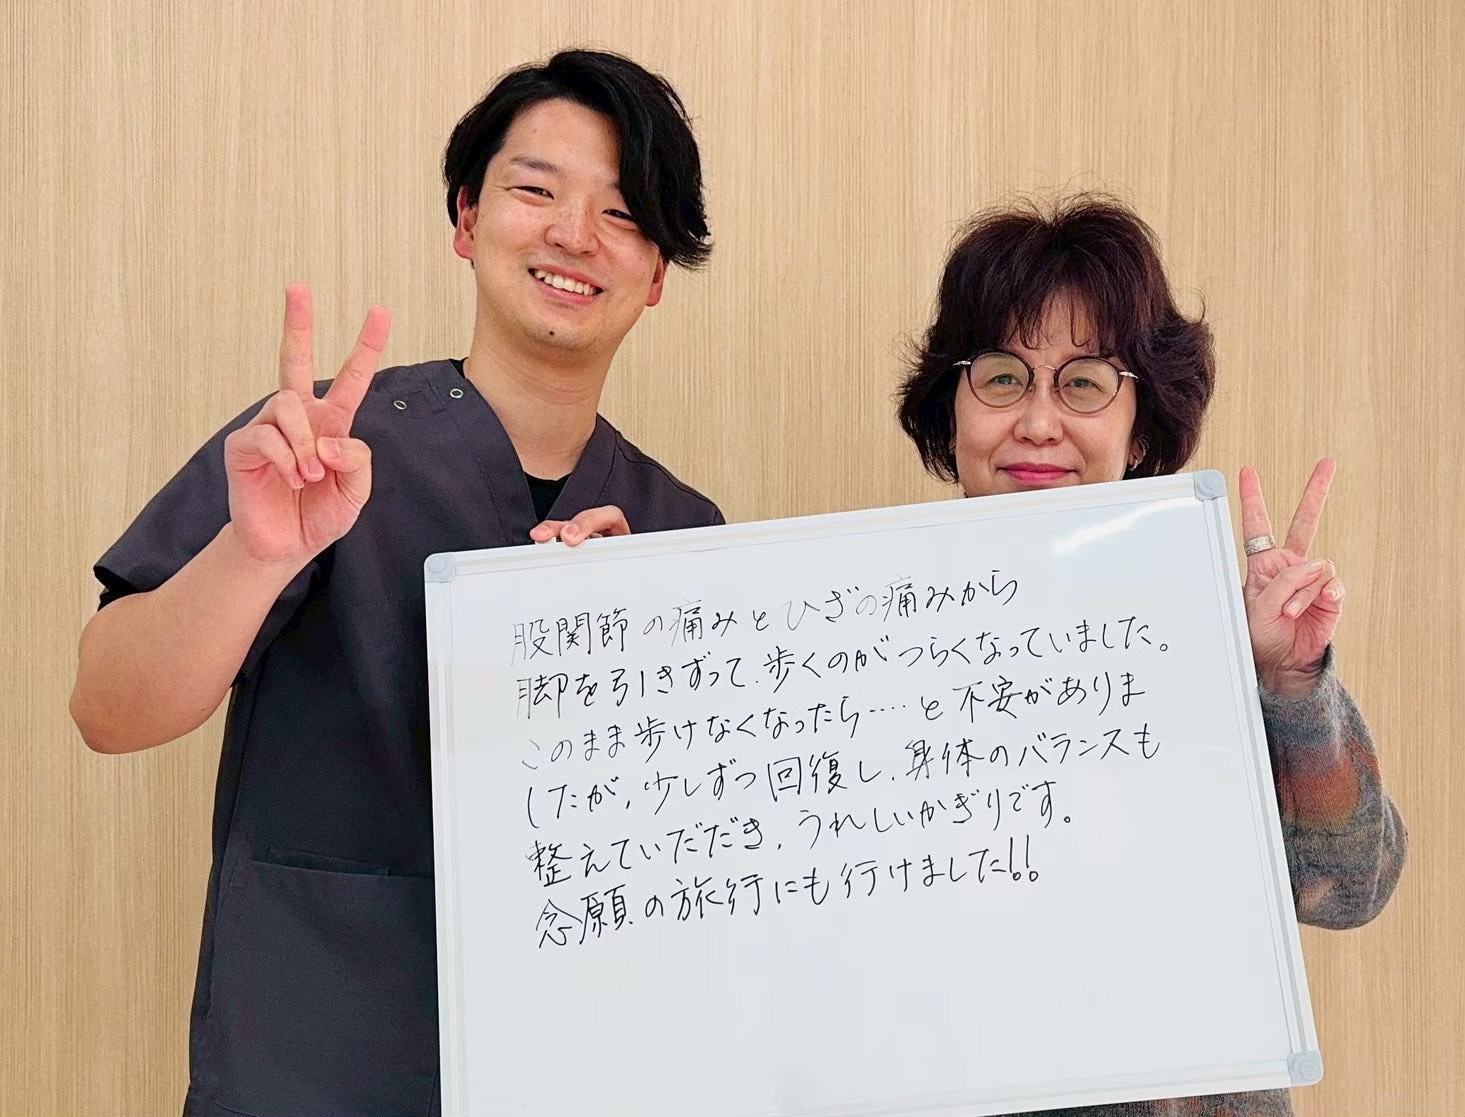 股関節の痛みとひざの痛みから
脚を引きずって、歩くのがつらくなっていました。
このまま歩けなくなったら‥‥と不安がありま
したが、少しずつ回復し、身体のバランスも
整えていただき、うれしいかぎりです。
念願の旅行にも行けました!!